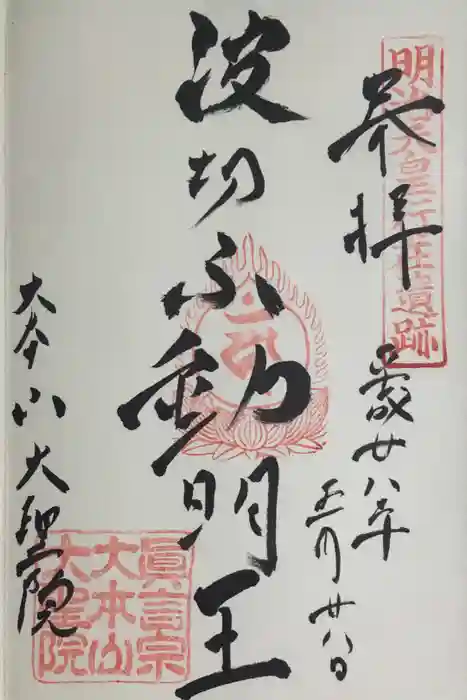 明治天皇行在所遺跡
奉拝
平成廿八年
五月廿八日
波切不動明王
大本山大聖院
眞言宗
大本山
大聖院